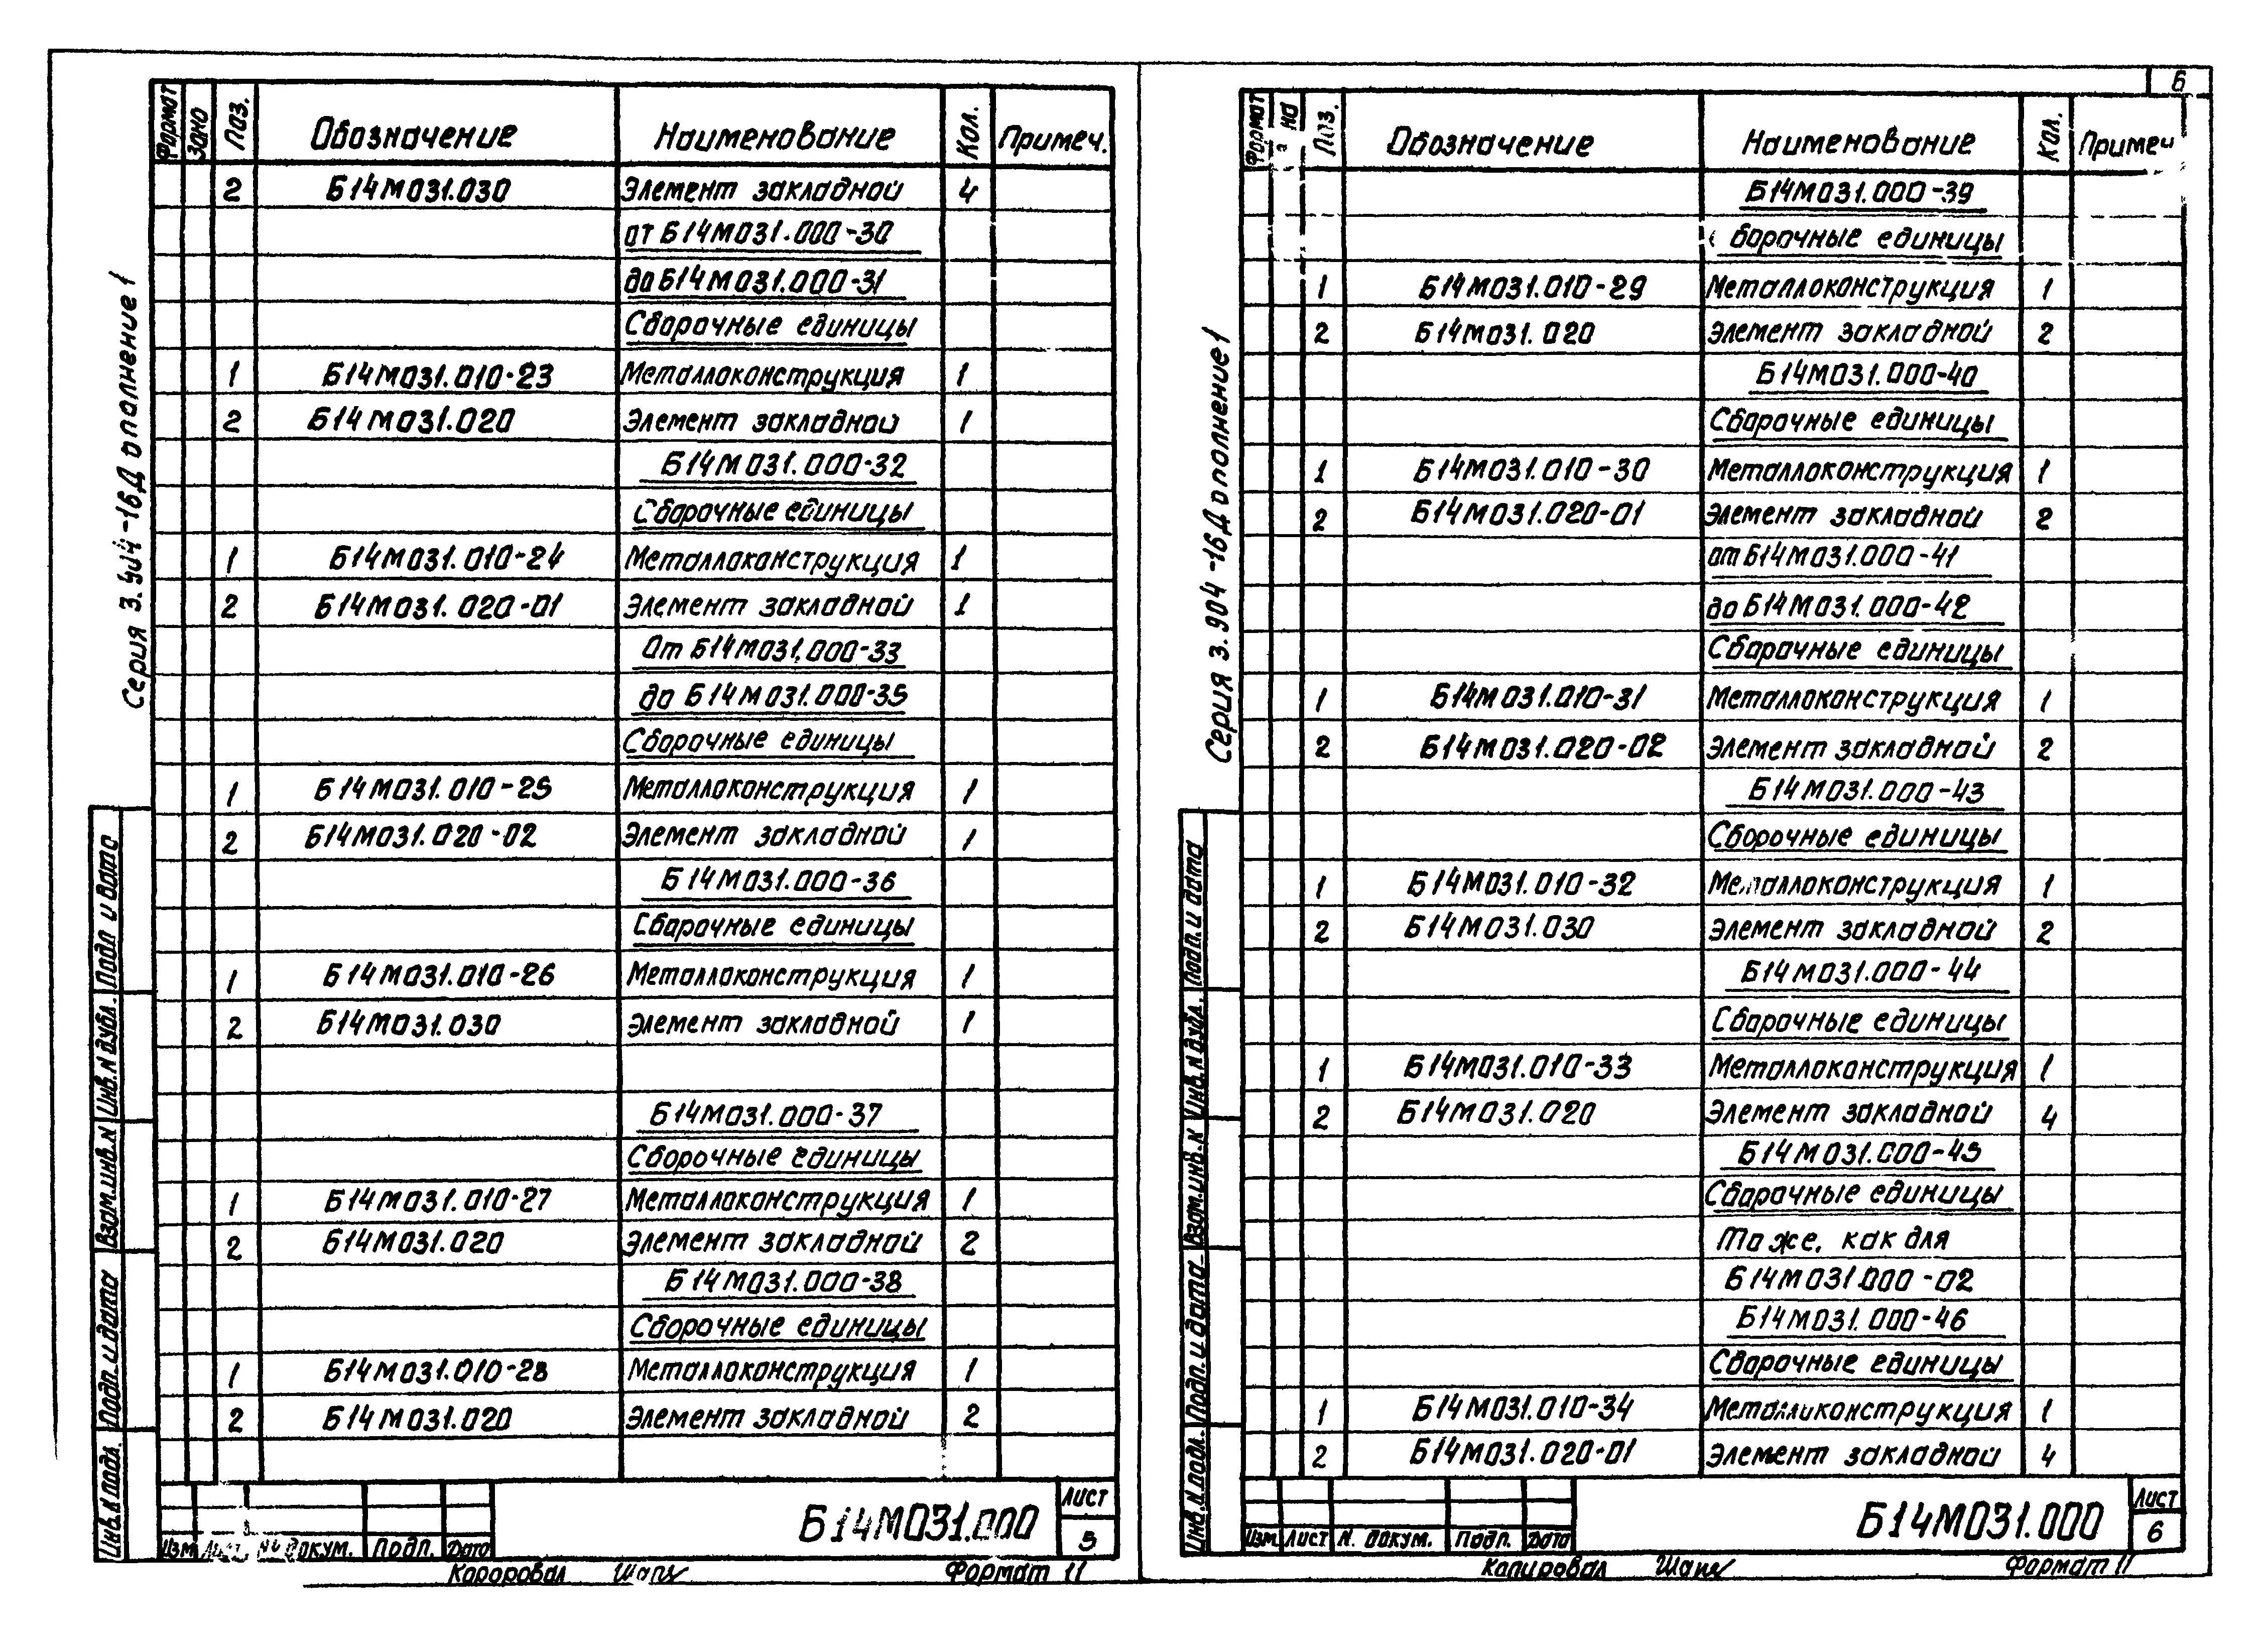 6
Серия 3.904-16 Дополнение 1
Формат Зона Поз. Обозначение Наименование Кол. Примеч.
2 Б14М031.030 Элемент закладной 4
от Б14М031.000-30
до Б14М031.000-31
Сборочные единицы
1 Б14М031.010-23 Металлоконструкция 1
2 Б14М031.020 Элемент закладной 1
Б14М031.000-32
Сборочные единицы
1 Б14М031.010-24 Металлоконструкция 1
2 Б14М031.020-01 Элемент закладной 1
От Б14М031.000-33
до Б14М031.000-35
Сборочные единицы
1 Б14М031.010-25 Металлоконструкция 1
2 Б14М031.020-02 Элемент закладной 1
Б14М031.000-36
Сборочные единицы
1 Б14М031.010-26 Металлоконструкция 1
2 Б14М031.030 Элемент закладной 1
Б14М031.000-37
Сборочные единицы
1 Б14М031.010-27 Металлоконструкция 1
2 Б14М031.020 Элемент закладной 2
Б14М031.000-38
Сборочные единицы
1 Б14М031.010-28 Металлоконструкция 1
2 Б14М031.020 Элемент закладной 2
Инв.N подл. Подп. и дата Взам.инв.N Инв.N дубл. Подп и дата
Изм Лист N докум. Подп. Дата
Б14М031.000
Лист
5
Копировал Формат 11
Серия 3.904-16 Дополнение 1
Формат Зона Поз. Обозначение Наименование Кол. Примеч
Б14М031.000-39
Сборочные единицы
1 Б14М031.010-29 Металлоконструкция 1
2 Б14М031.020 Элемент закладной 2
Б14М031.000-40
Сборочные единицы
1 Б14М031.010-30 Металлоконструкция 1
2 Б14М031.020-01 Элемент закладной 2
от Б14М031.000-41
до Б14М031.000-42
Сборочные единицы
1 Б14М031.010-31 Металлоконструкция 1
2 Б14М031.020-02 Элемент закладной 2
Б14М031.000-43
Сборочные единицы
1 Б14М031.010-32 Металлоконструкция 1
2 Б14М031.030 Элемент закладной 2
Б14М031.000-44
Сборочные единицы
1 Б14М031.010-33 Металлоконструкция 1
2 Б14М031.020 Элемент закладной 4
Б14М031.000-45
Сборочные единицы
То же, как для
Б14М031.000-02
Б14М031.000-46
Сборочные единицы
1 Б14М031.010-34 Металлоконструкция 1
2 Б14М031.020-01 Элемент закладной 4
Инв.N подл. Подп. и дата Взам.инв.N Инв.N дубл. Подп. и дата
Изм. Лист N. докум. Подп. Дата
Б14М031.000
Лист
6
Копировал Формат 11